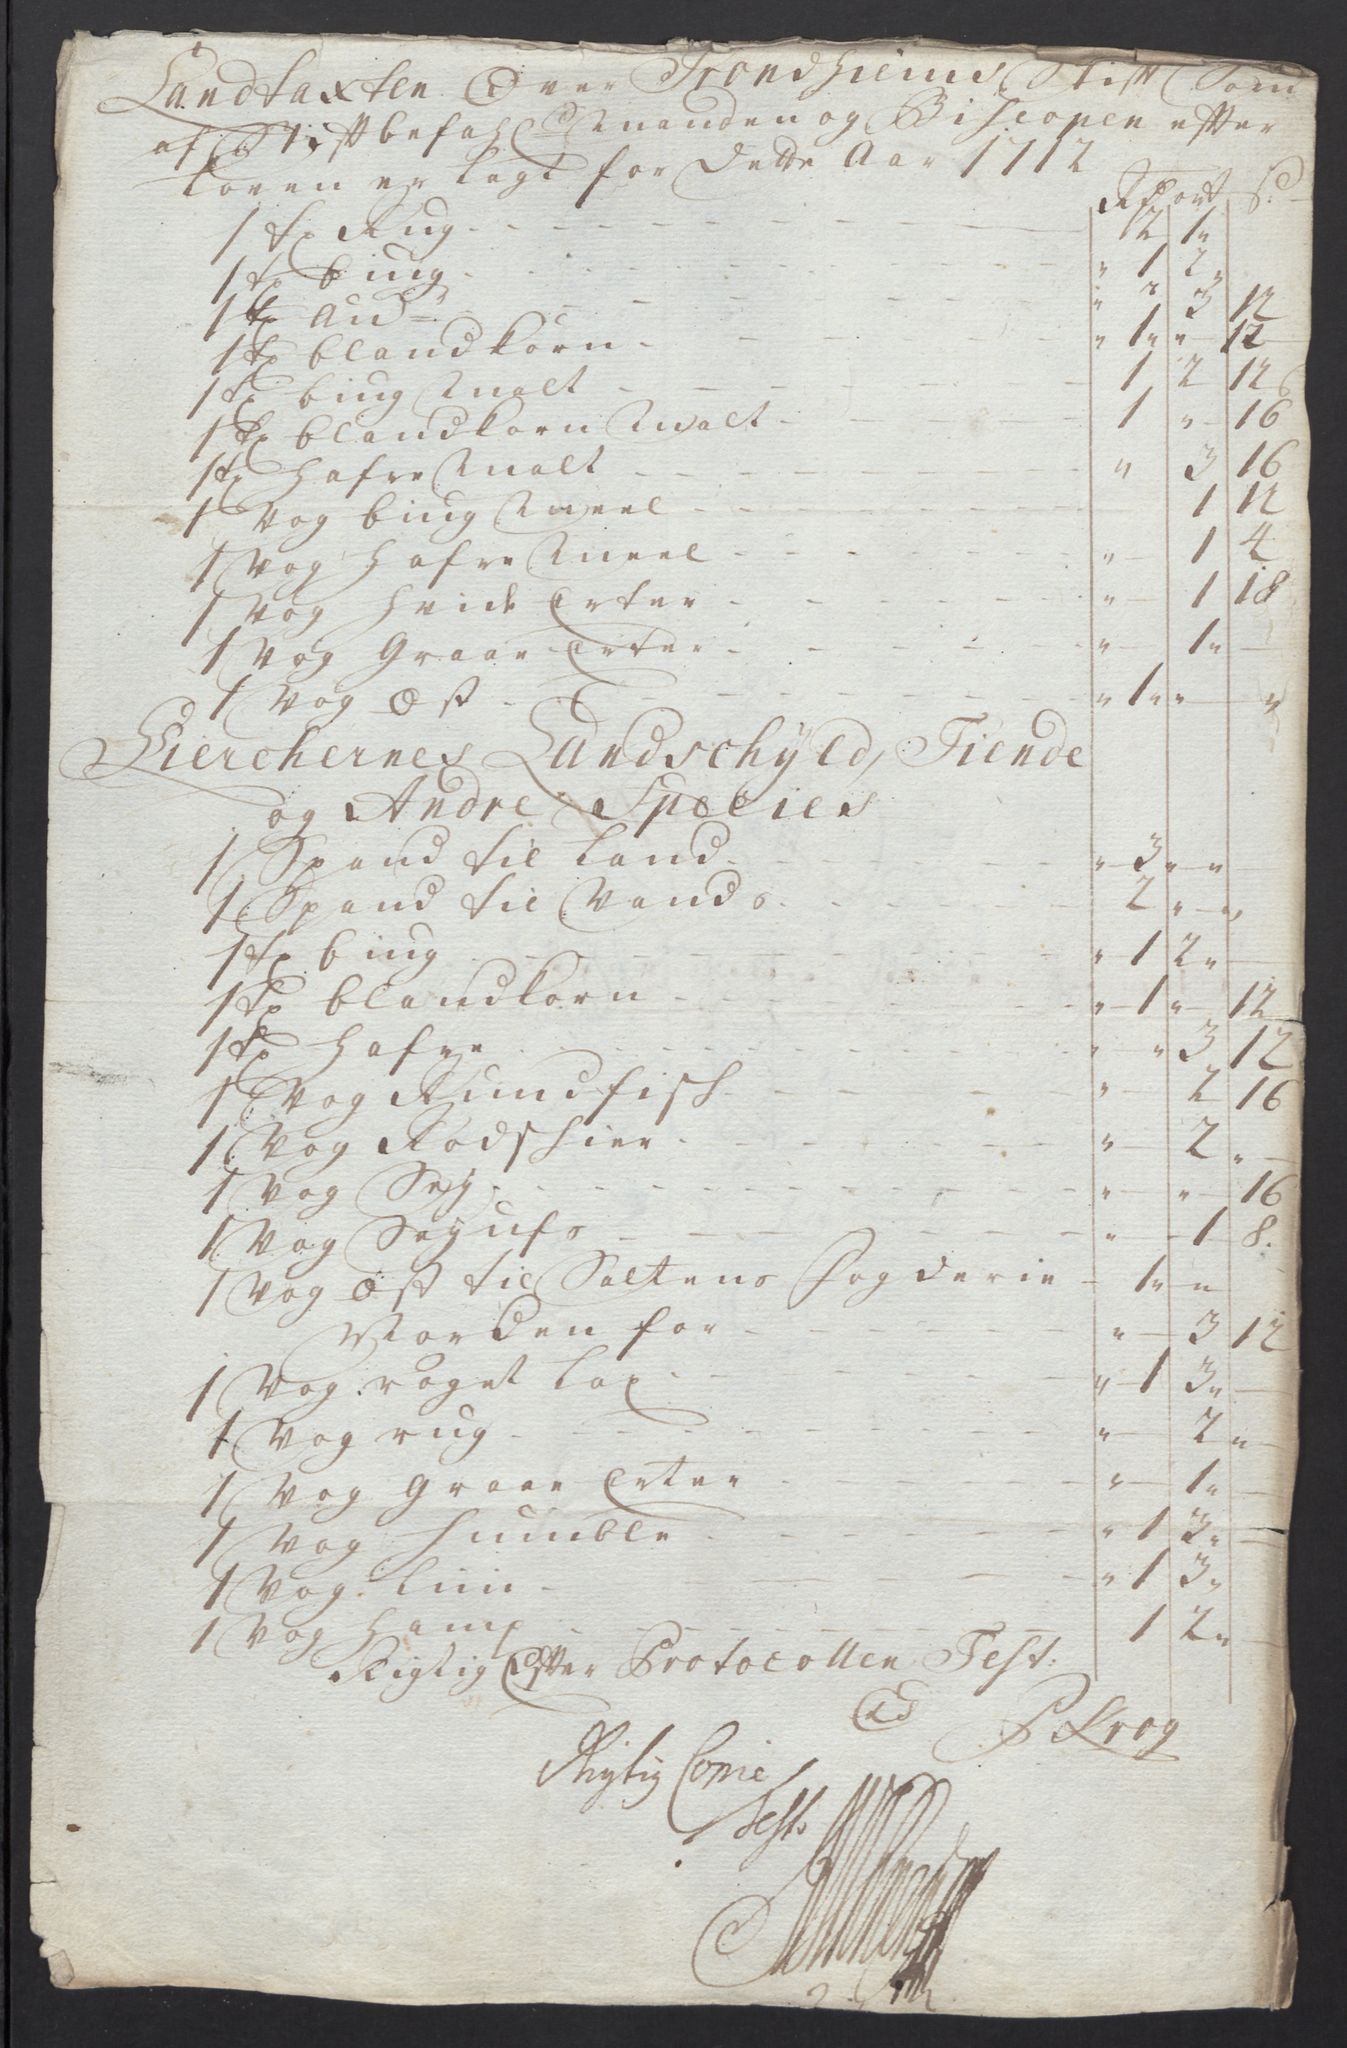 Landtaxten Over Trondhiems Stift Som
af Stiftbefahl Manden og Biscopen efter
Loven er lagt for dette Aar 1712
Rdr ort s
1 tp Rug 2 1 "
1 tp biug " 1 2 "
1 tp " " 3 12
1 tp blandkorn " 1 " " 12
1 tp biug Malt 1 2 12
1 tp blandkorn Malt 1 " 16
1 tp hafre Malt " 3 16
1 Vog biug Meel 1 12
1 Vog hafre Meel " 1 4
1 Vog hvide Erter " 1 18
1 Vog Graae Erter " 1 "
1 Vog Ost " 1 " " "
Kierchernes Landschyld, Tiende
og Andre Species
1 Spand til Land " 3 " "
1 Spand til Vands 2 " "
1 tp biug " 1 2 "
1 tp blandkorn " 1 " 12
1 tp hafre " " 3 12
1 Vog Rundfisch " 2 16
1 Vog Rodschier " 2 "
1 Vog Sey " " 16
1 Vog Seyufs " 1 8
1 Vog Ost til Saltens Fogderie 1 " "
Norden for " 3 12
1 Vog røget Lax " 1 3 "
1 Vog rug " 2 "
1 Vog Graae Erter " 1 "
1 Vog humble " 1 3 "
1 Vog Liin " 1 3 "
1 Vog hamp 1 2 "
Rigtig Efter Protocollen Test:
P Krog
Rigtig Copie
Test